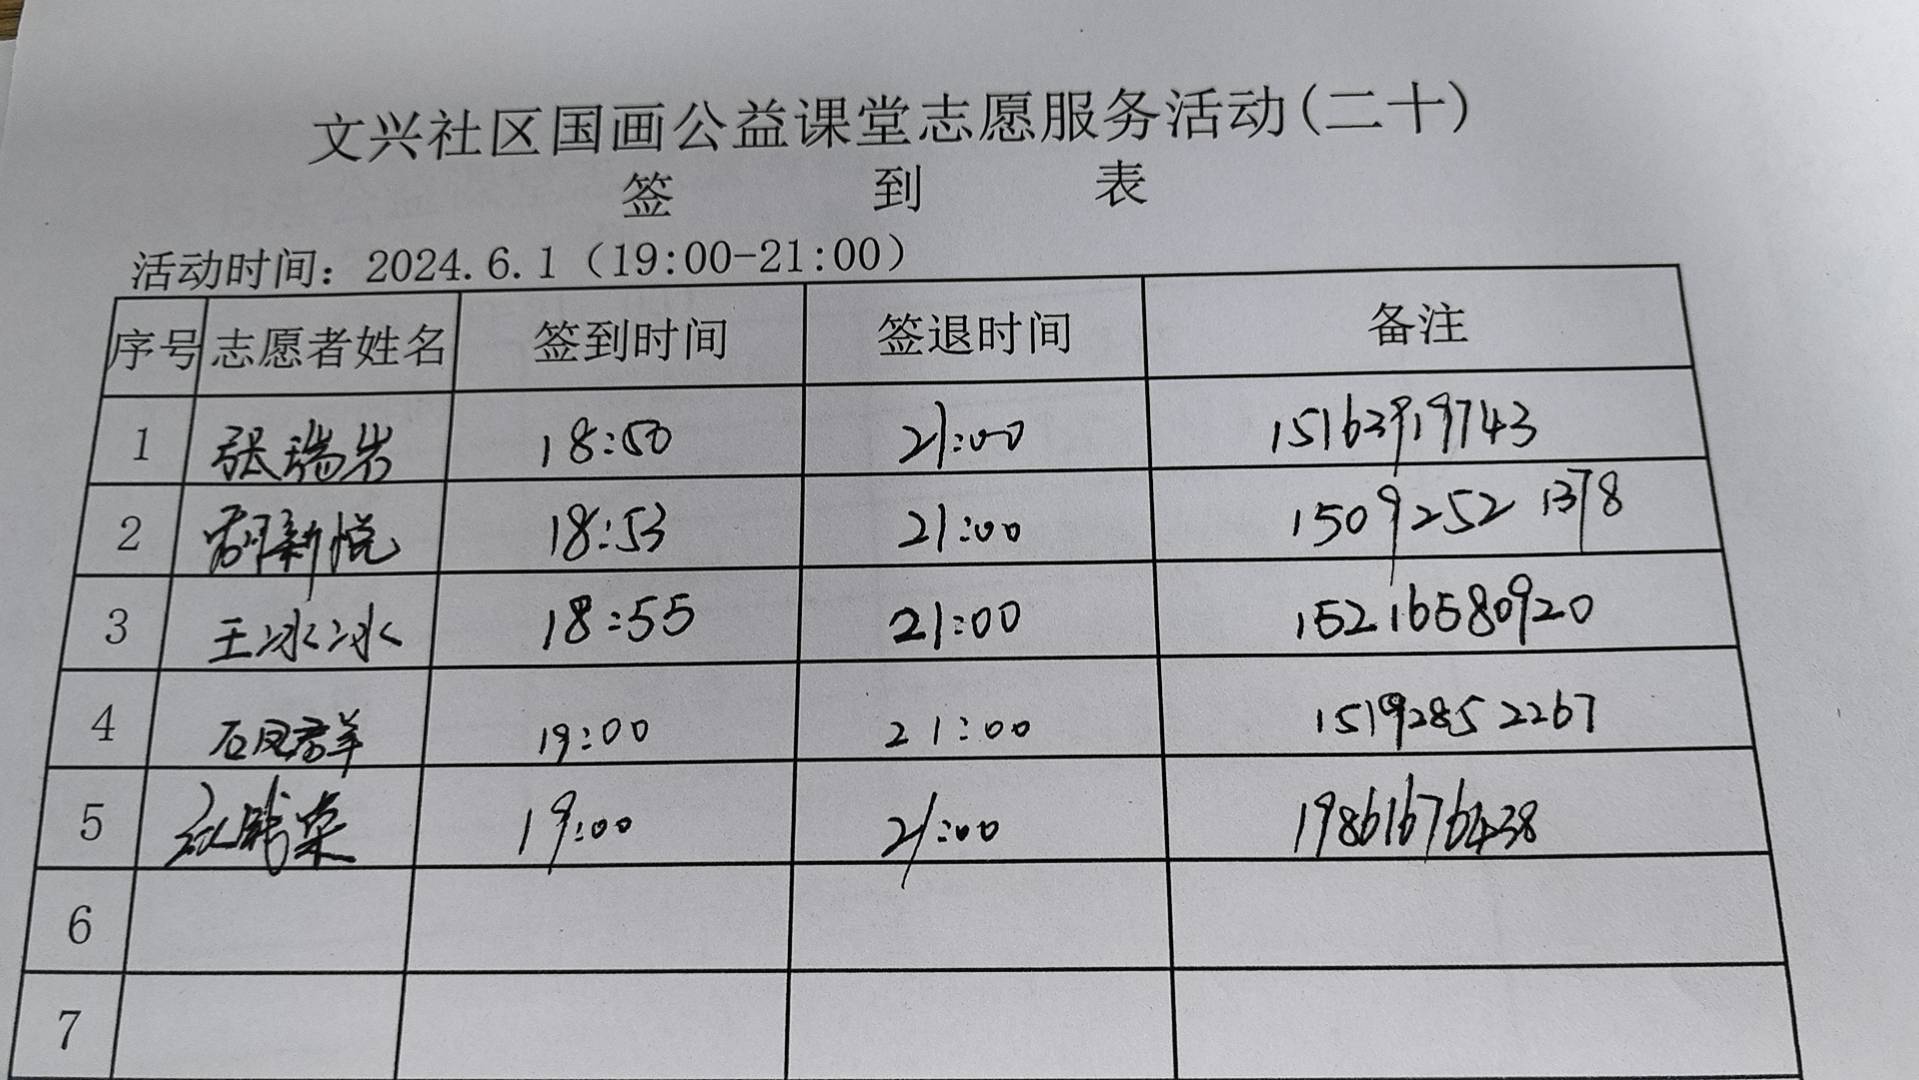 文兴社区国画公益课堂志愿服务活动(二十)
签 到 表
活动时间：2024.6.1（19:00-21:00）
序号 志愿者姓名 签到时间 签退时间 备注
1 张瑞岩 18:50 21:00 15163919743
2 新悦 18:53 21:00 15092521378
3 王冰冰 18:55 21:00 15216580920
4 石凤群 19:00 21:00 15192852267
5 19:00 21:00 19861676438
6
7